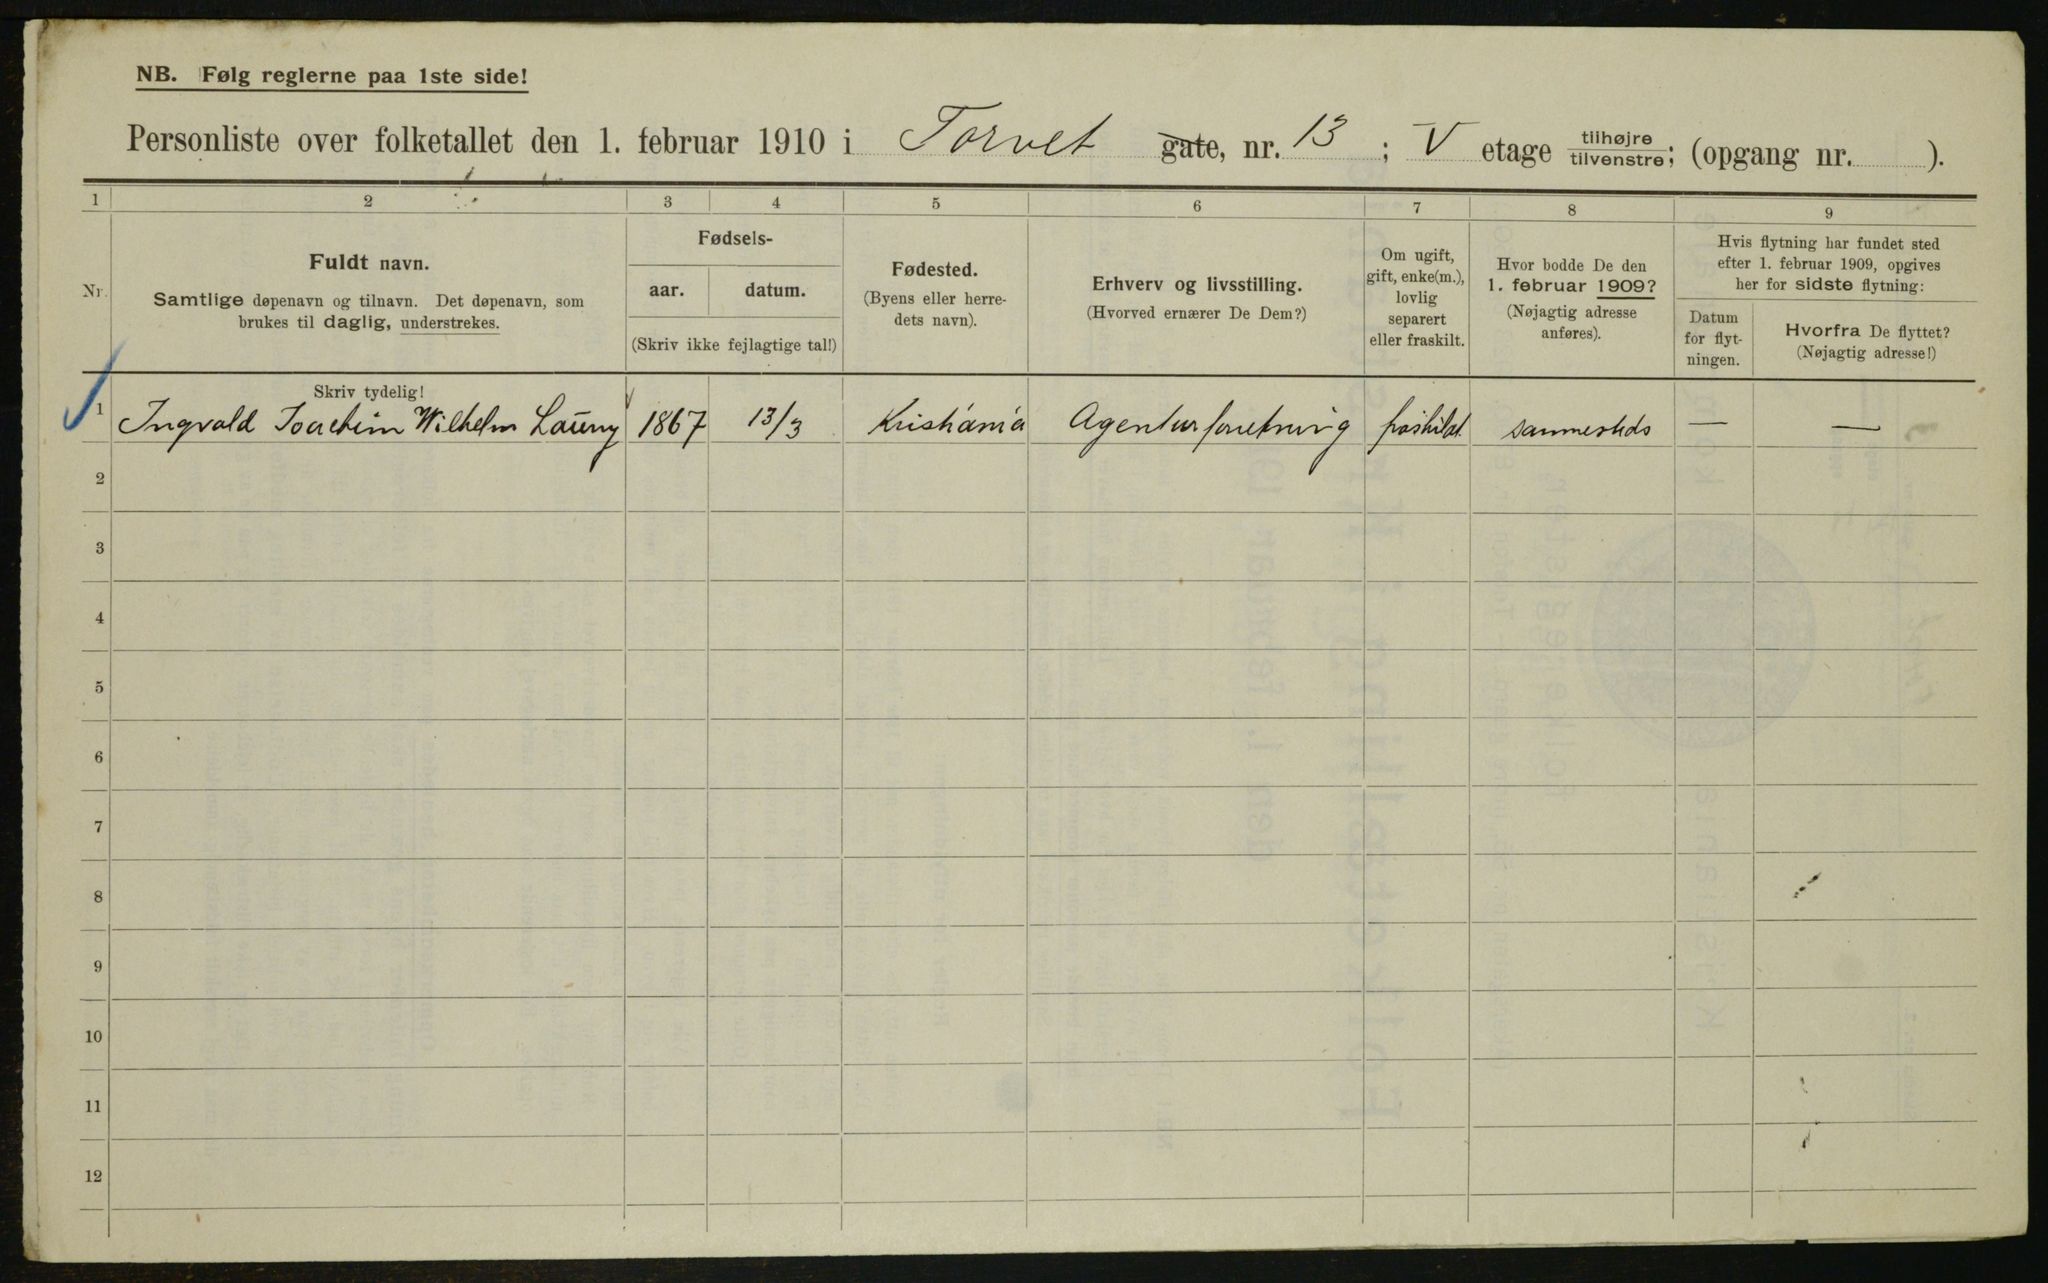 NB. Følg reglerne paa 1ste side!
Personliste over folketallet den 1. februar 1910 i Torvet gate, nr. 13 ; V etage tilhøjre tilvenstre; (opgang nr. ).
1 2 3 4 5 6 7 8 9
Nr.
Fuldt navn.
Samtlige døpenavn og tilnavn. Det døpenavn, som
brukes til daglig, understrekes.
Fødsels-
aar. datum.
(Skriv ikke fejlagtige tal!)
Fødested.
(Byens eller herre-
dets navn).
Erhverv og livsstilling.
(Hvorved ernærer De Dem?)
Om ugift,
gift, enke(m.),
lovlig
separert
eller fraskilt.
Hvor bodde De den
1. februar 1909?
(Nøjagtig adresse
anføres).
Hvis flytning har fundet sted
efter 1. februar 1909, opgives
her for sidste flytning:
Datum
for flyt-
ningen.
Hvorfra De flyttet?
(Nøjagtig adresse!)
Skriv tydelig!
1 Ingvald Joachim Wilhelm 1867 13/3 Kristiania Agenturforretning fraskilt sammesteds — —
2
3
4
5
6
7
8
9
10
11
12